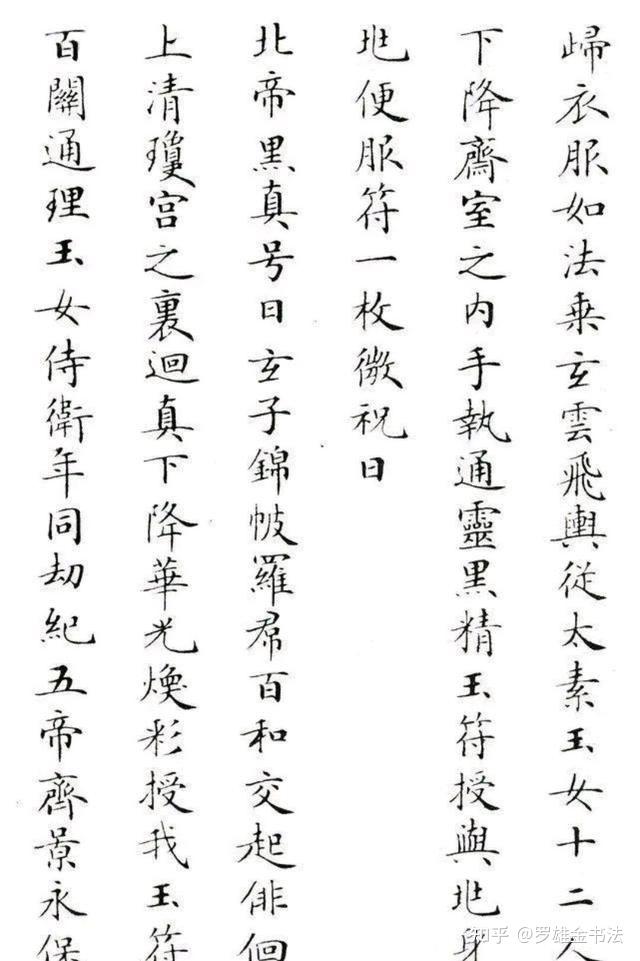 歸衣服如法乗玄雲飛輿從太素玉女十二人
下降齋室之内手執通靈黒精玉符授與兆身
兆便服符一枚微祝曰
北帝黒真号曰玄子錦帔羅帬百和交起俳佪
上清瓊宫之裏迴真下降華光煥彩授我玉符
百關通理玉女侍衛年同劫紀五帝齊景永保
知乎 @罗雄金书法